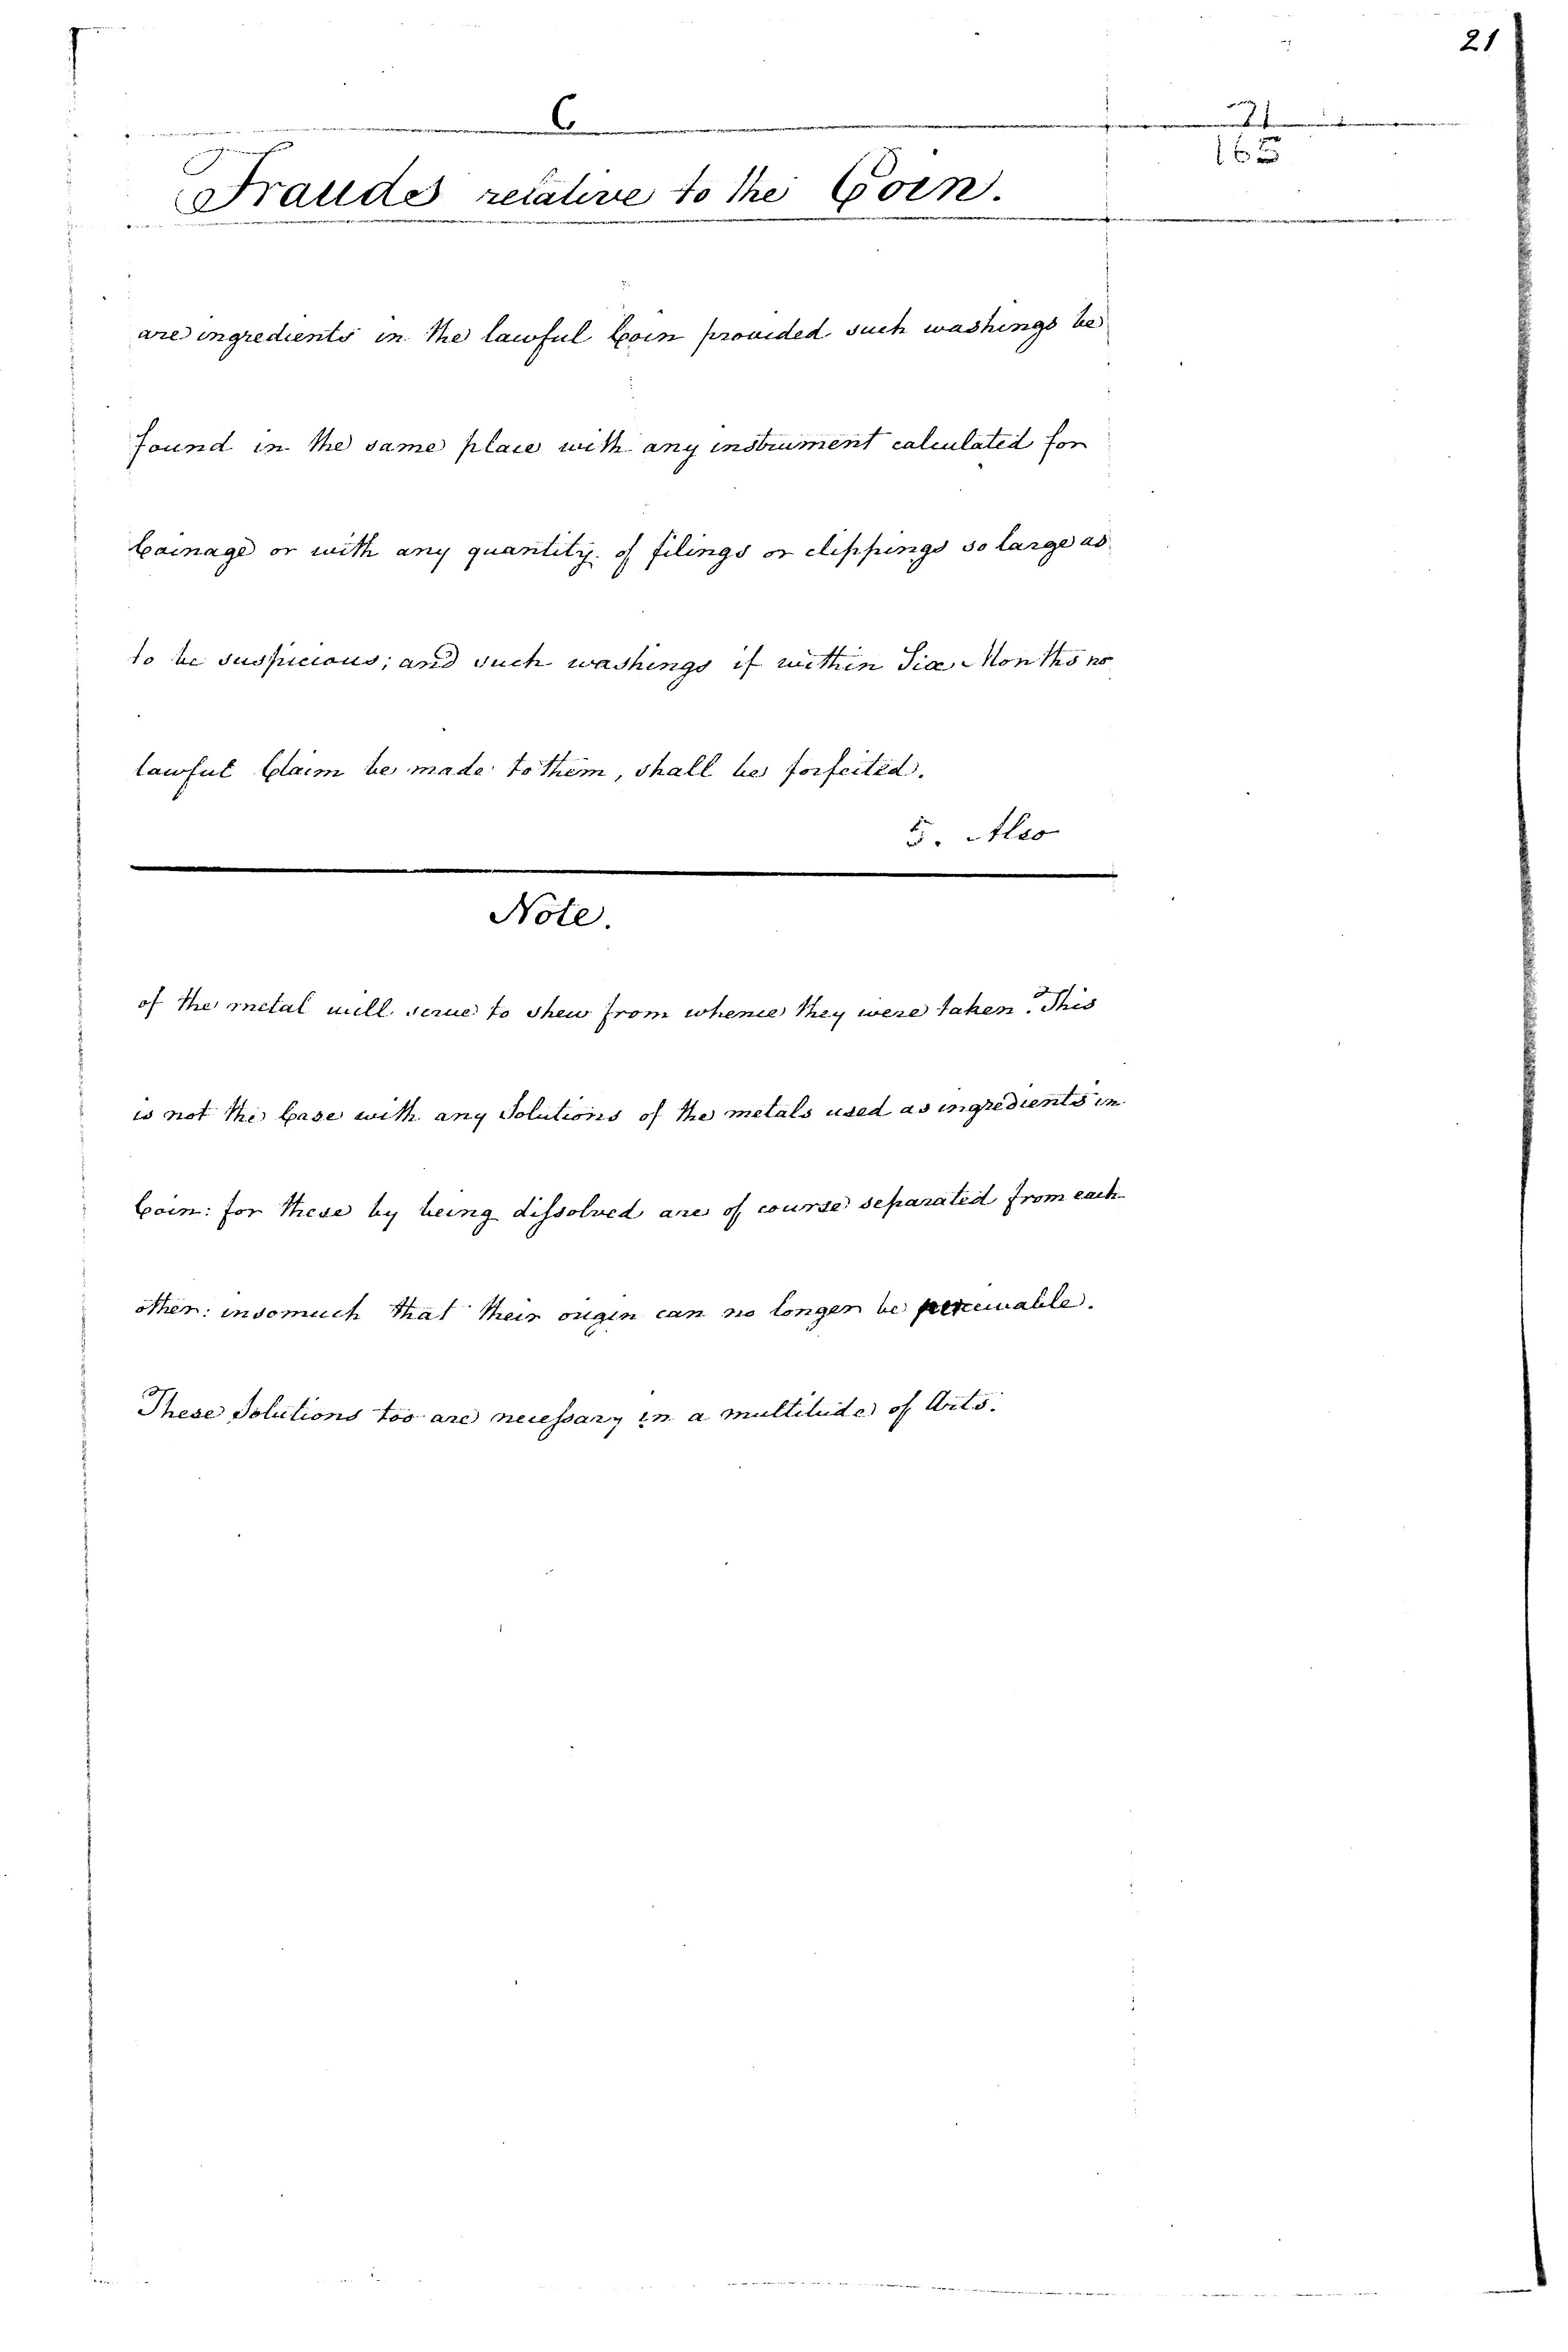 21
C
21
165
Fraudes relative to the Coin.
are ingredients in the lawful Coin provided such washings be
found in the same place with any instrument calculated for
Coinage or with any quantity of filings or clippings so large as
to be suspicious; and such washings if within Six Months no
lawful Claim be made to them, shall be forfeited.
5. Also
Note.
of the metal will serve to shew from whence they were taken. This
is not the Case with any Solutions of the metals used as ingredients in
Coin: for these by being dissolved are of course separated from each
other: insomuch that their origin can no longer be perceivable.
These Solutions too are necessary in a multitude of Arts.